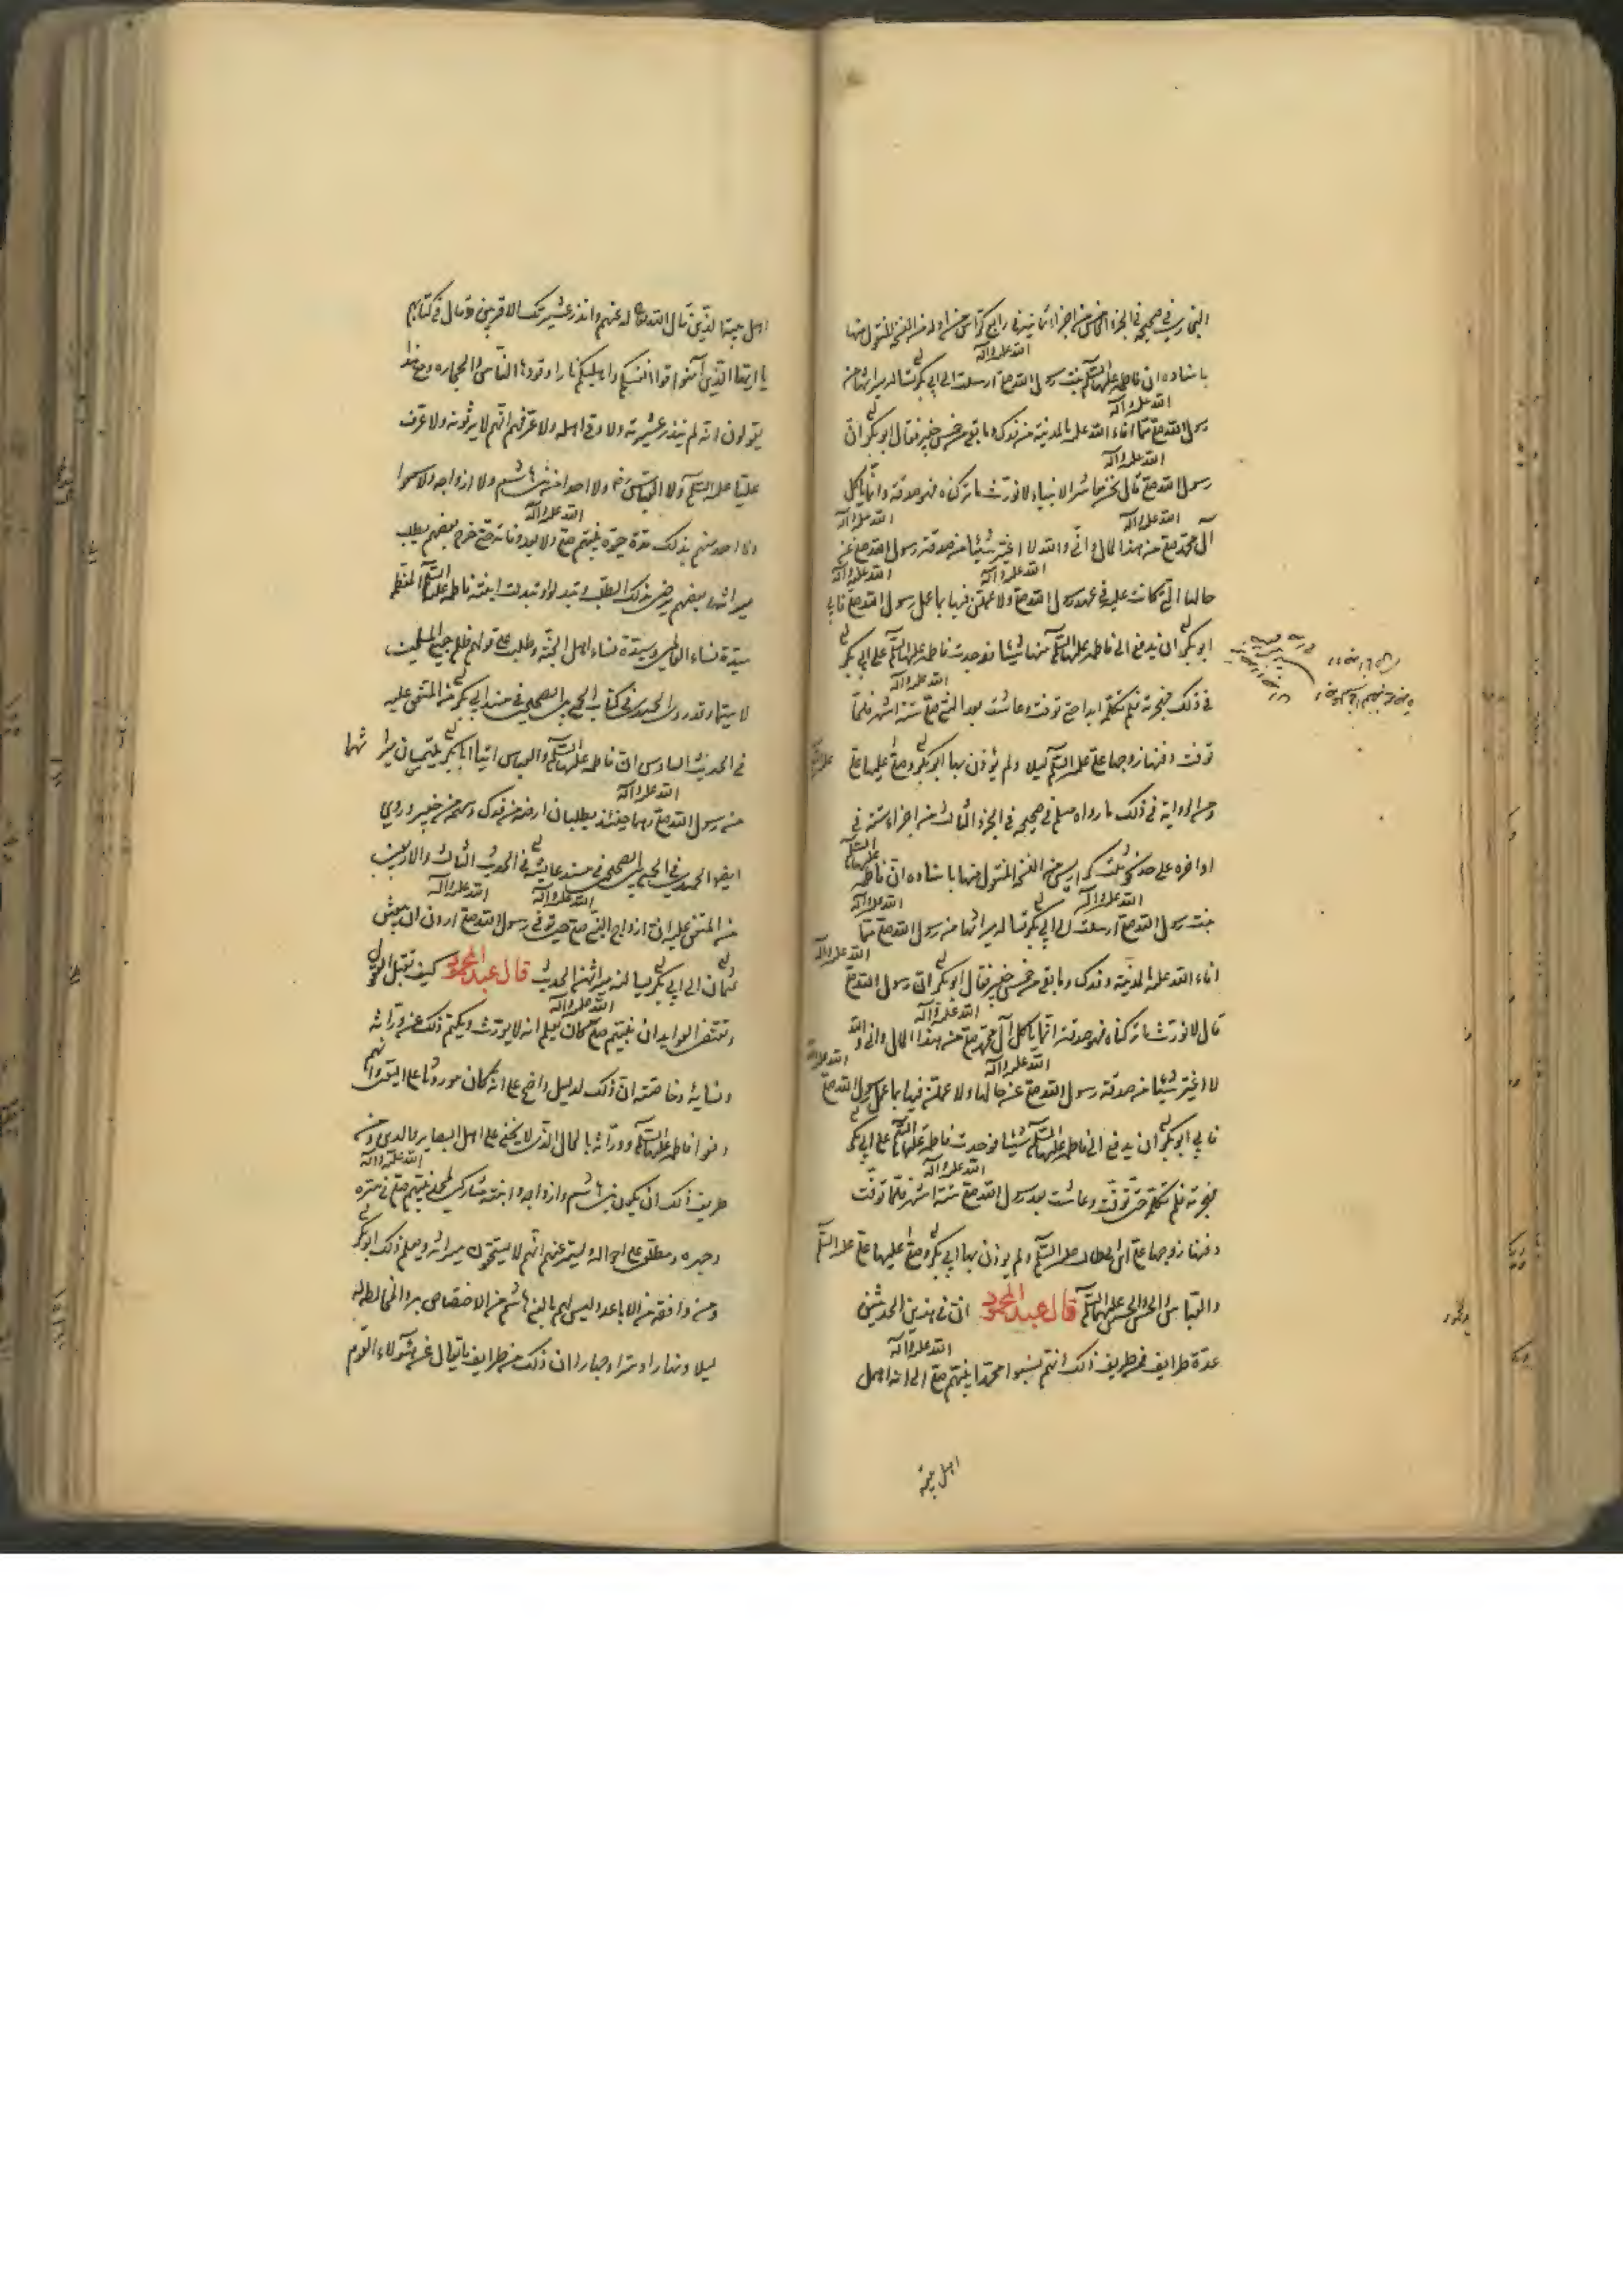 البخاري في صحيحه في الجزء الخامس من اجزاء ثمانية في رابع كراس من اوله من النسخة المنقول منها
باسناده ان فاطمة عليها السلم بنت رسول الله صلى الله عليه وآله ارسلت الى ابي بكر تسأله ميراثها من
رسول الله صلى الله عليه وآله مما افاء الله عليه بالمدينة من فدك وما بقي من خمس خيبر فقال ابو بكر ان
رسول الله صلى الله عليه وآله قال نحن معاشر الانبياء لا نورث ما تركناه فهو صدقة وانما ياكل
آل محمد صلى الله عليه وآله من هذا المال واني والله لا اغير شيئا من صدقة رسول الله صلى الله عليه وآله عن
حالها التي كانت عليه في عهد رسول الله صلى الله عليه وآله ولاعملن فيها بما عمل رسول الله صلى الله عليه وآله فابى
ابو بكر ان يدفع الى فاطمة عليها السلم منها شيئا فوجدت فاطمة عليها السلم على ابي بكر
في ذلك فهجرته فلم تكلمه ابدا حتى توفت وعاشت بعد النبي صلى الله عليه وآله ستة اشهر فلما
توفت دفنها زوجها علي عليه السلم ليلا ولم يؤذن بها ابو بكر وصلى عليها علي عليه السلم
ومن الرواية في ذلك ما رواه مسلم في صحيحه في الجزء الثالث من اجزاء ستة في
اواخره على حد ثلث كراريس من النسخة المنقول منها باسناده ان فاطمة عليها السلم
بنت رسول الله صلى الله عليه وآله ارسلت الى ابي بكر تسأله ميراثها من رسول الله صلى الله عليه وآله مما
افاء الله عليه بالمدينة وفدك وما بقي من خمس خيبر فقال ابو بكر ان رسول الله صلى الله عليه وآله
قال لا نورث ما تركناه فهو صدقة انما ياكل آل محمد صلى الله عليه وآله من هذا المال واني والله
لا اغير شيئا من صدقة رسول الله صلى الله عليه وآله عن حالها ولاعملن فيها بما عمل رسول الله صلى الله عليه وآله
فابى ابو بكر ان يدفع الى فاطمة عليها السلم شيئا فوجدت فاطمة عليها السلم على ابي بكر
فهجرته فلم تكلمه حتى توفت وعاشت بعد رسول الله صلى الله عليه وآله ستة اشهر فلما توفت
دفنها زوجها علي ابن ابي طالب عليه السلم ولم يوذن بها ابي بكر وصلى عليها علي عليه السلم
والعباس والحسن والحسين عليهما السلم قال عبد المحمود ان في هذين الحديثين
عدة طرايف فمن طريف ذلك انتم نسبوا محمدا نبيهم صلى الله عليه وآله الى انه اهمل
اهل بيته
اهل بيته الذين قال الله تعالى له عنهم وانذر عشيرتك الاقربين وقال في كتابهم
يا ايها الذين آمنوا قوا انفسكم واهليكم نارا وقودها الناس والحجارة
يقولون انه لم ينذر عشيرته ولا وقى اهله ولا عرفهم انهم لا يرثونه ولا عرف
عليا عليه السلم ولا العباس ولا احدا من بني هاشم ولا ازواجه ولا سمعوا
ولا احد منهم بذلك مدة حيوة نبيهم صلى الله عليه وآله ولا بعد وفاته حتى خرج بعضهم يطلب
ميراثه وبعضهم يرضى بذلك الطلب وتبذلوا وتبذلت ابنته فاطمة عليها السلم المعظمة
سيدة نساء العالمين وسيدة نساء اهل الجنة وطلبت على قولهم ظلم جميع المسلمين
لا سيما وقد روى الحميدي في كتاب الجمع بين الصحيحين في مسند ابي بكر من المتفق عليه
في الحديث السادس ان فاطمة عليها السلم والعباس اتيا ابا بكر يلتمسان ميراثهما
من رسول الله صلى الله عليه وآله وهما حينئذ يطلبان ارضه من فدك وسهمه من خيبر وروى
ايضا الحميدي في الجمع بين الصحيحين في مسند عايشة في الحديث الثالث والاربعين
من المتفق عليه ان ازواج النبي صلى الله عليه وآله حين توفي رسول الله صلى الله عليه وآله اردن ان يبعثن
عثمان الى ابي بكر يسألنه ميراثهن الحديث قال عبد المحمود كيف تقبل العقول
وتقتضي العوايد ان نبيهم صلى الله عليه وآله كان يعلم انه لا يورث ويكتم ذلك عن وراثه
ونسايه وخاصته ان ذلك لدليل واضح على انه كان موروثا على اليقين وانهم
دفعوا فاطمة عليها السلم ووراثه بالمحال الذي لا يخفى على اهل البصاير والدين ومن
طريف ذلك ان يكون بني هاشم وازواجه وابنته مشاركين لمحمد نبيهم صلى الله عليه وآله في سره
وجهره ومطلعين على احواله ويستر عنهم انهم لا يستحقون ميراثه ويعلم ذلك ابو بكر
ومن وافقه من الاباعد وليس لهم بالبني هاشم من الاختصاص به والمخالطة له
ليلا ونهارا وسرا وجهارا ان ذلك من طرايف ما يقال عن هؤلاء القوم